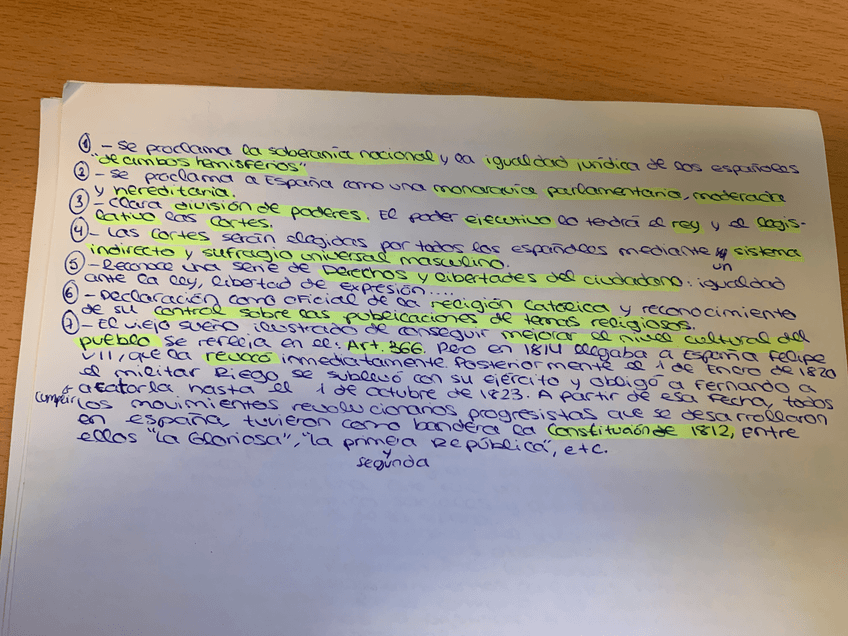 ① - Se proclama la soberanía nacional y la igualdad jurídica de los españoles
"de ambos hemisferios"
② - Se proclama a España como una monarquía parlamentaria, moderada
y hereditaria.
③ - Clara división de poderes. El poder ejecutivo lo tendrá el rey y el legis-
lativo las Cortes.
④ - Las cortes serán elegidas por todos los españoles mediante un sistema
indirecto y sufragio universal masculino.
⑤ - Reconoce una serie de Derechos y libertades del ciudadano: igualdad
ante la ley, libertad de expresión.....
⑥ - Declaración como oficial de la religión Católica y reconocimiento
de su control sobre las publicaciones de temas religiosos.
⑦ - El viejo sueño ilustrado de conseguir mejorar el nivel cultural del
pueblo se refleja en el: Art. 366. Pero en 1814 llegaba a España Felipe
VII, que la revocó inmediatamente. Posteriormente el 1 de Enero de 1820
el militar Riego se sublevó con su ejército y obligó a Fernando a
cumplir o acatarla hasta el 1 de octubre de 1823. A partir de esa fecha, todos
los movimientos revolucionarios progresistas que se desarrollaron
en españa, tuvieron como bandera la Constitución de 1812, entre
ellos "La Gloriosa", "la primera República", etc.
y segunda